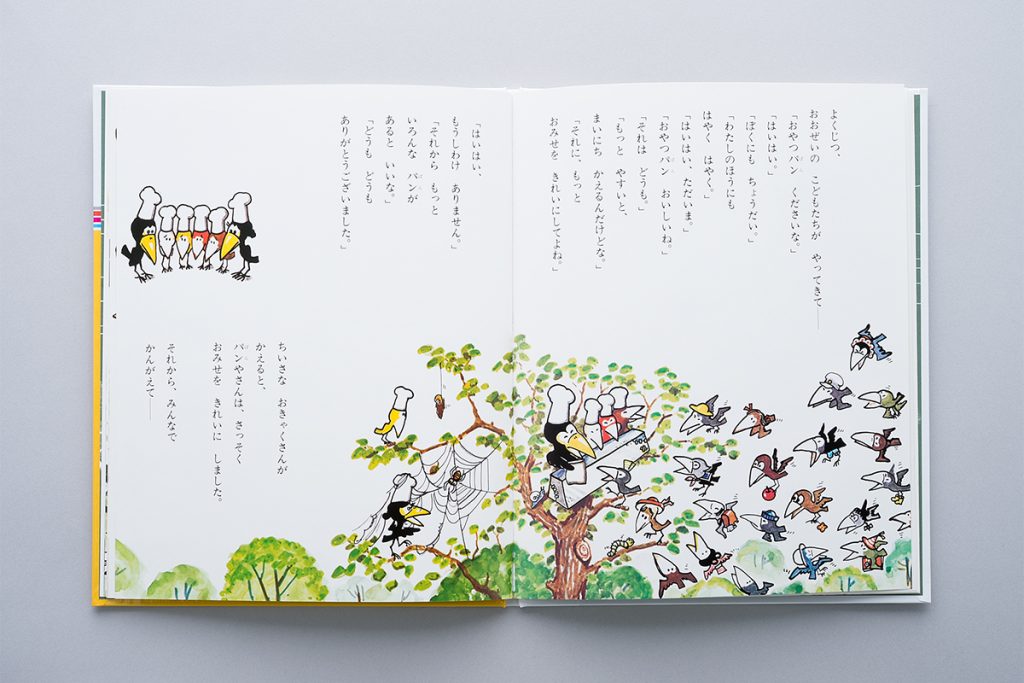 よくじつ、
おおぜいの こどもたちが やってきて――
「おやつパン くださいな。」
「はいはい。」
「ぼくにも ちょうだい。」
「わたしのほうにも
はやく はやく。」
「はいはい、ただいま。」
「おやつパン おいしいね。」
「それは どうも。」
「もっと やすいと、
まいにち かえるんだけどな。」
「それに、もっと
おみせを きれいにしてよね。」
「はいはい、
もうしわけ ありません。」
「それから もっと
いろんな パンが
あると いいな。」
「どうも どうも
ありがとうございました。」
ちいさな おきゃくさんが
かえると、
パンやさんは、さっそく
おみせを きれいに しました。
それから、みんなで
かんがえて――